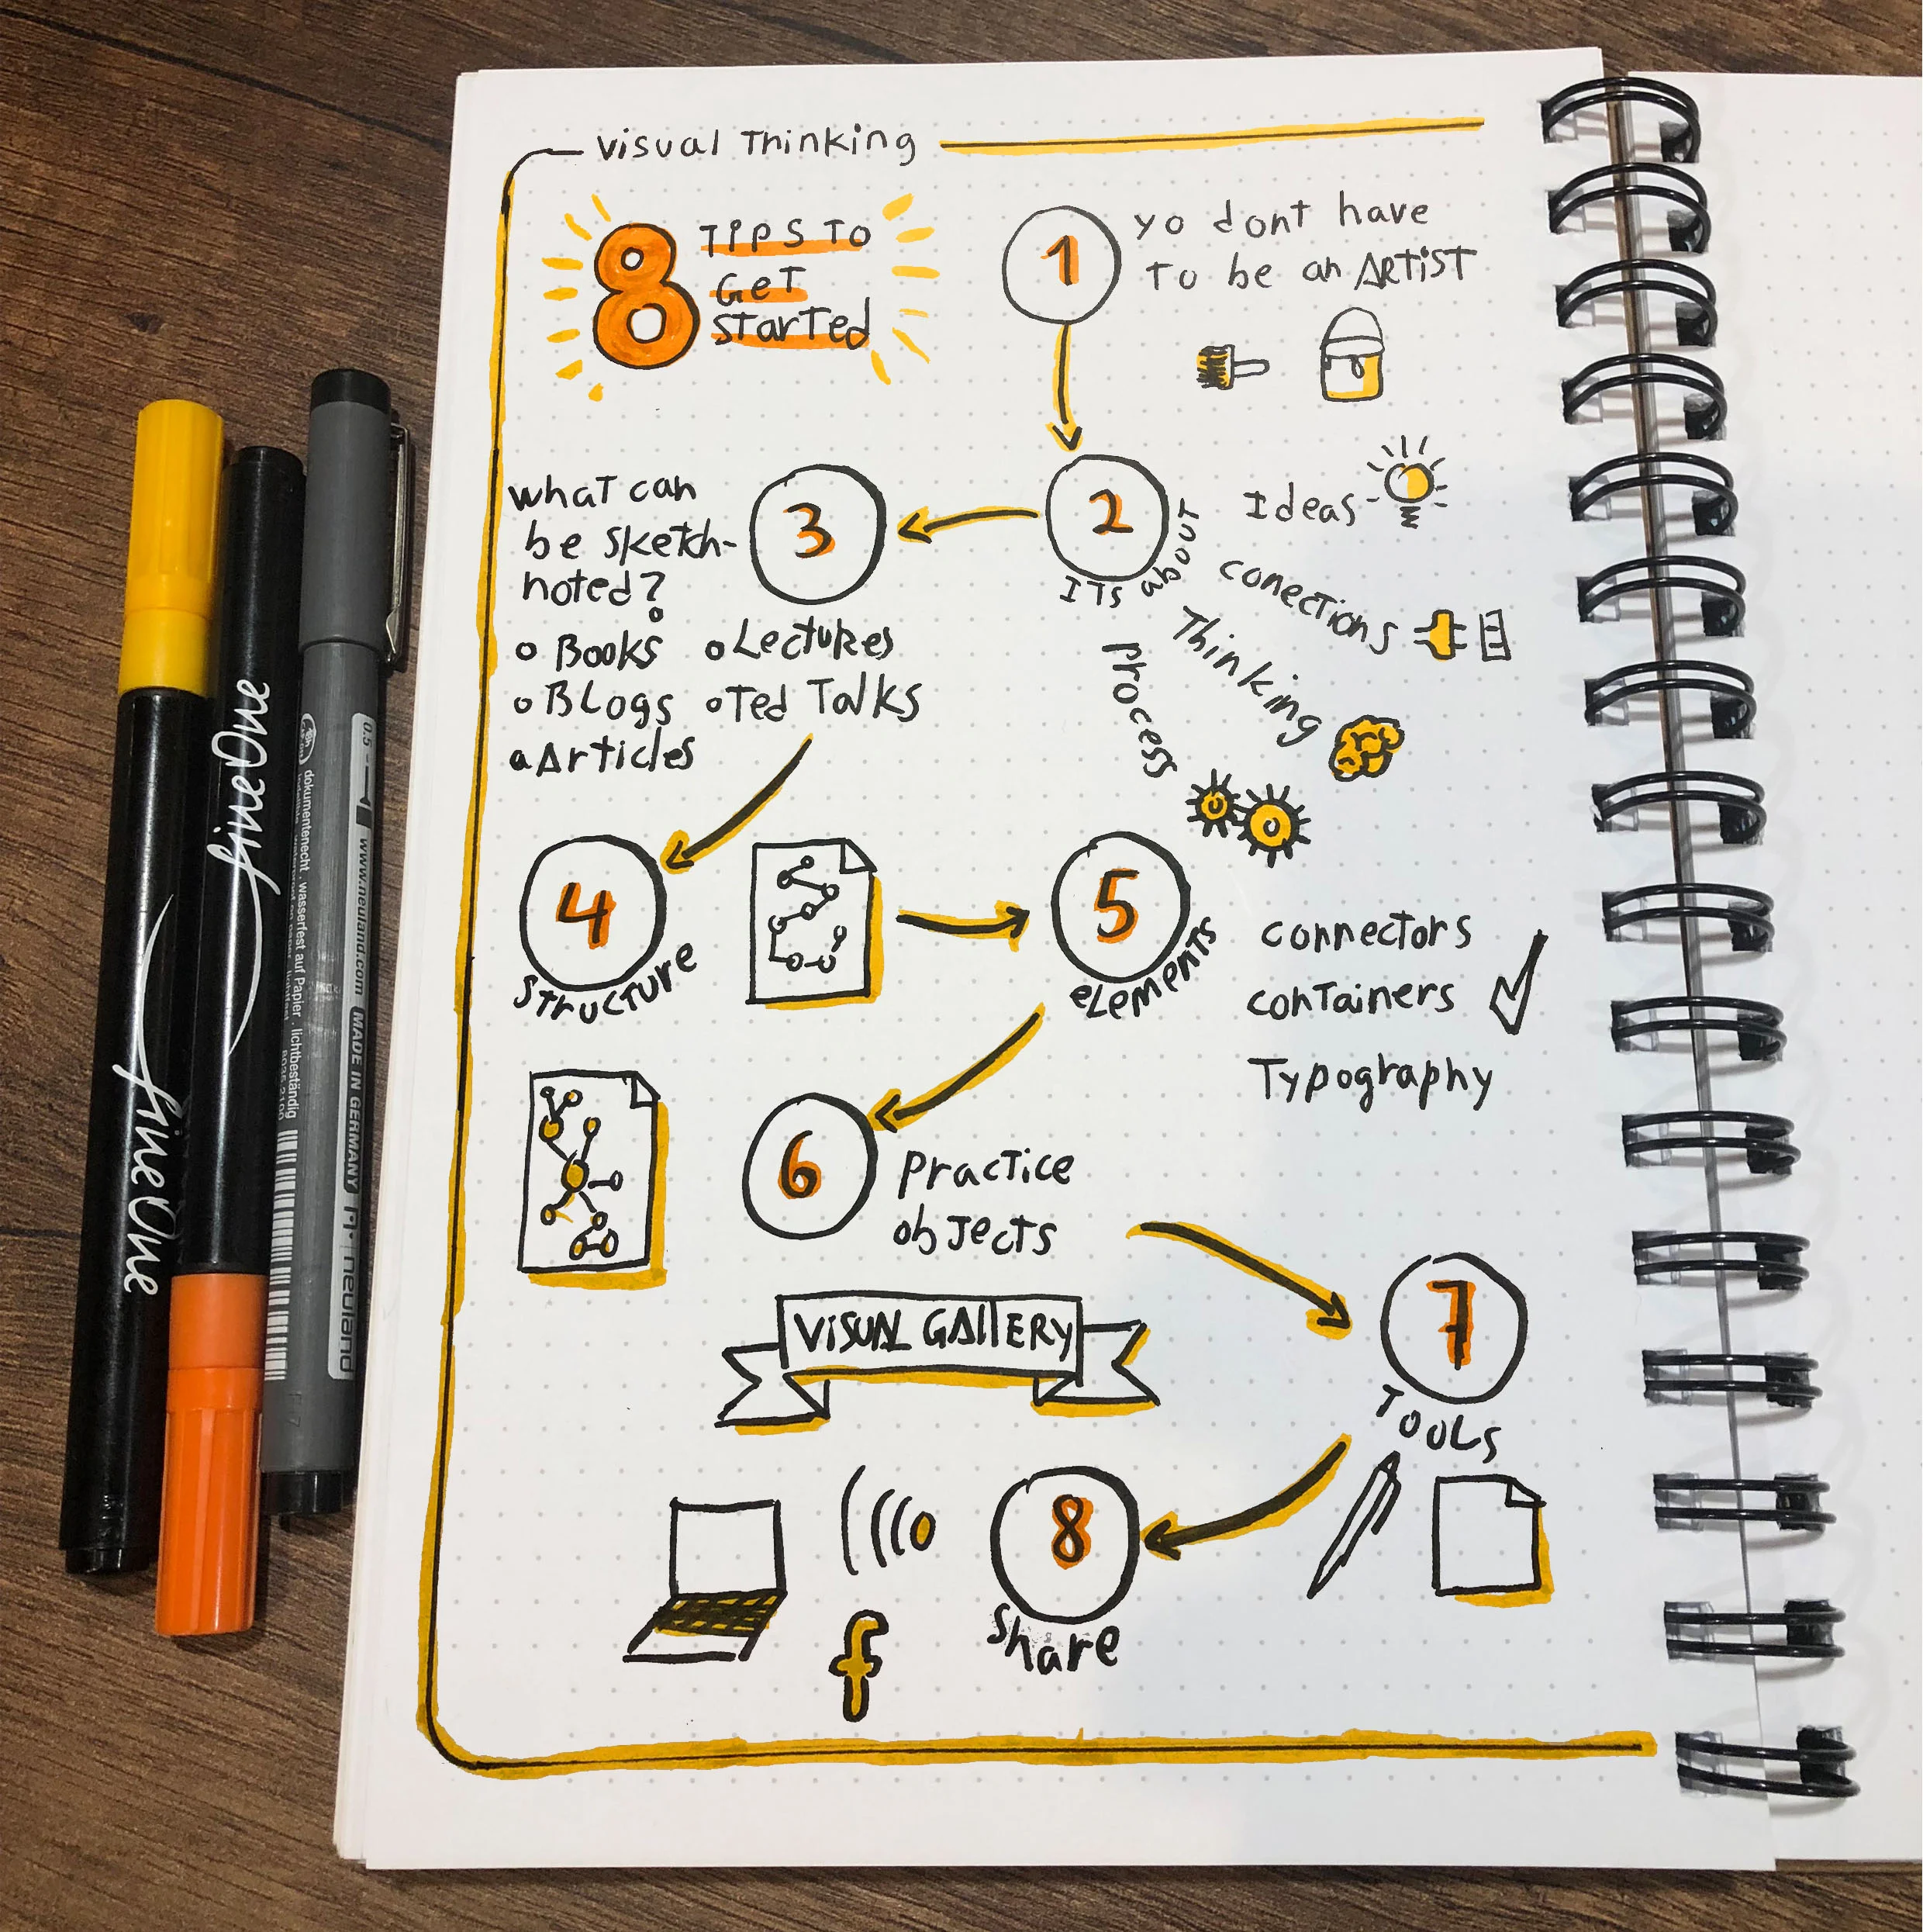 Visual Thinking
8
TIPS TO
GeT
STarTed
1
yo dont have
To be an ARTiST
2
ITs about
Ideas
conections
Thinking
process
3
whaT can
be sketch-
noted?
Books
Lectures
BLogs
Ted Talks
Articles
4
STrucTure
5
eLements
connectors
conTainers
Typography
6
pracTice
objects
ViSUAL GAllERY
7
TOOLS
8
share
f
fineOne
fineOne
0.5
www.neuland.com
MADE IN GERMANY
neuland
dokumentenecht . wasserfest auf Papier . lichtbeständig